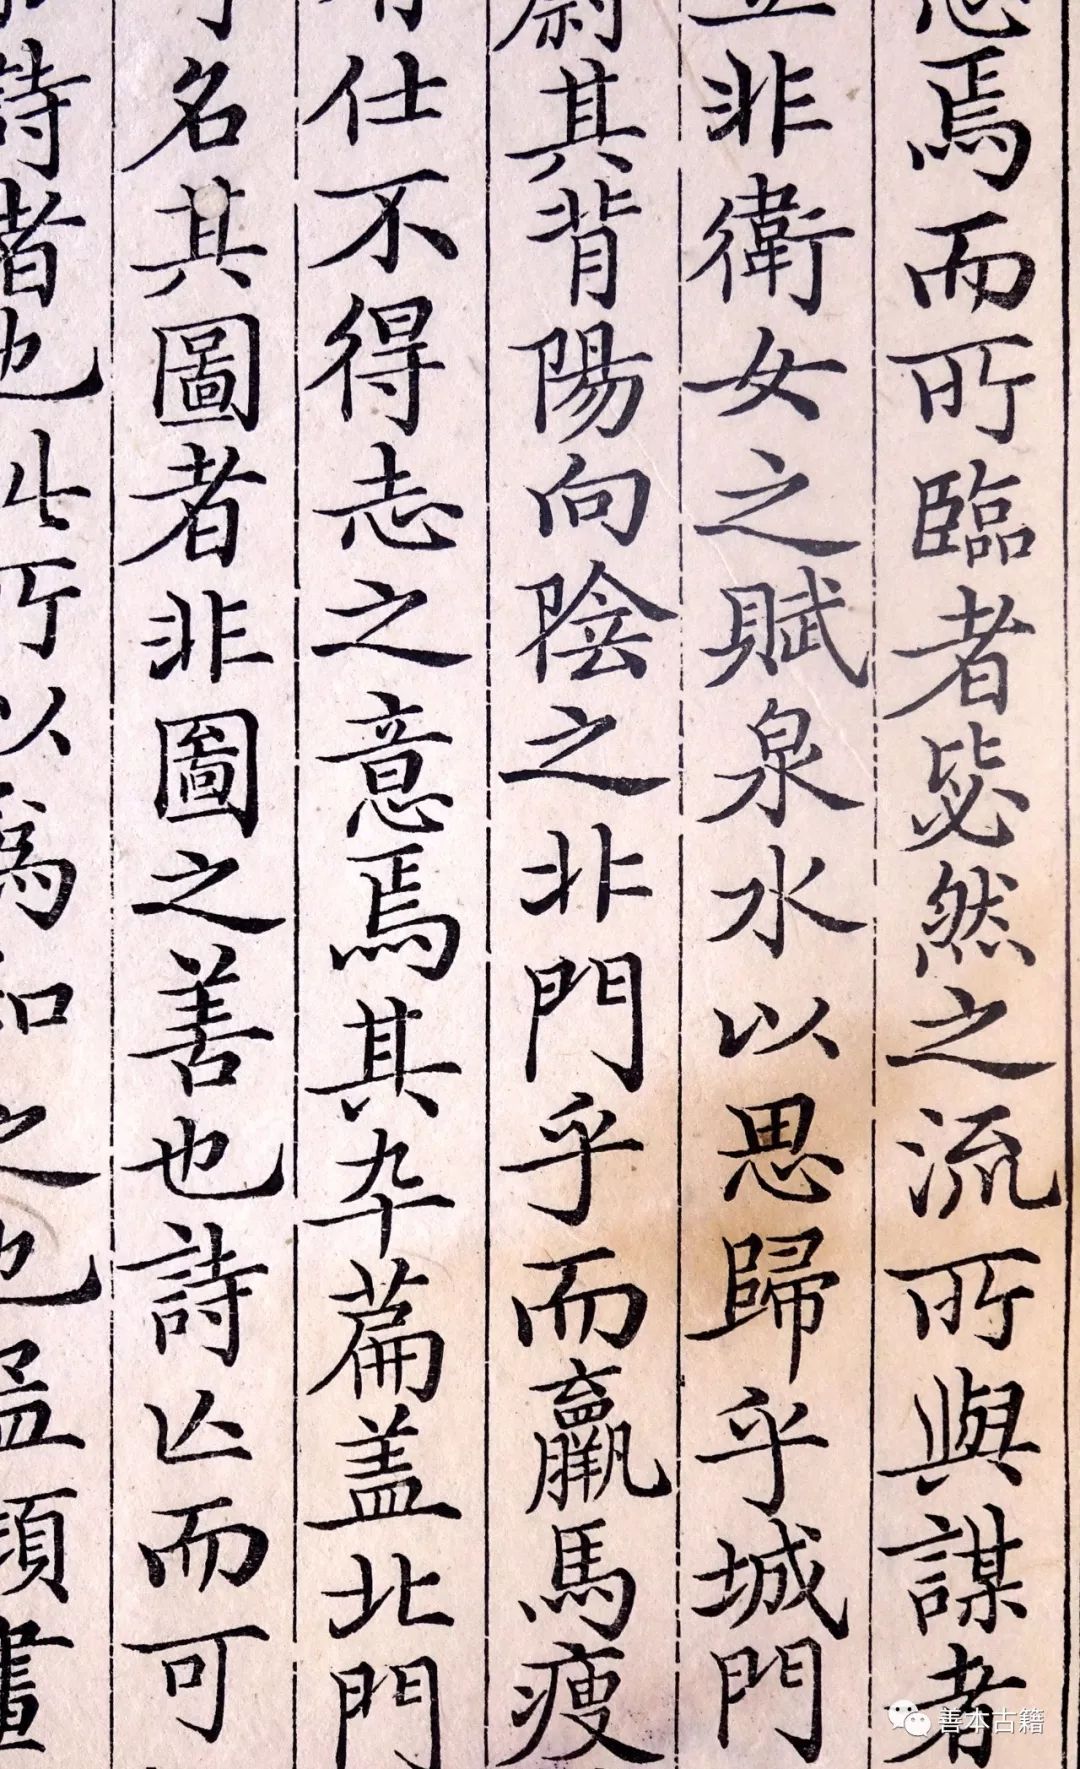 焉而所臨者毖然之流所與謀者
非衛女之賦泉水以思歸乎城門
其背陽向陰之非門乎而羸馬瘦
仕不得志之意焉其卒篇蓋北門
名其圖者非圖之善也詩亾而可
詩者也此所以為知之也孟頭畫
善本古籍